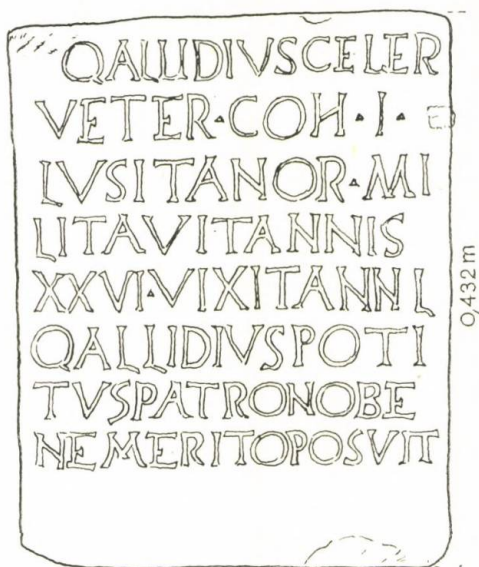 QALLIDIVSCELER
VETER▴COH▴I▴
LVSITANOR▴MI
LITAVITANNIS
XXVI▴VIXITANNL
QALLIDIVSPOTI
TVSPATRONOBE
NEMERITOPOSVIT
0,432 m